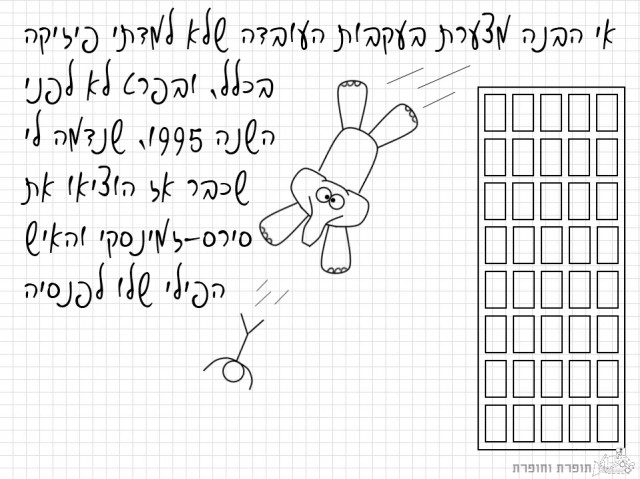 אי הבנה מצערת בעקבות העובדה שלא למדתי פיזיקה
בכלל, ובפרט לא לפני
השנה 1995, שנדמה לי
שכבר אז הוציאו את
סירס-זמינסקי והאיש
הפילי שלו לפנסיה
תופרת וחופרת